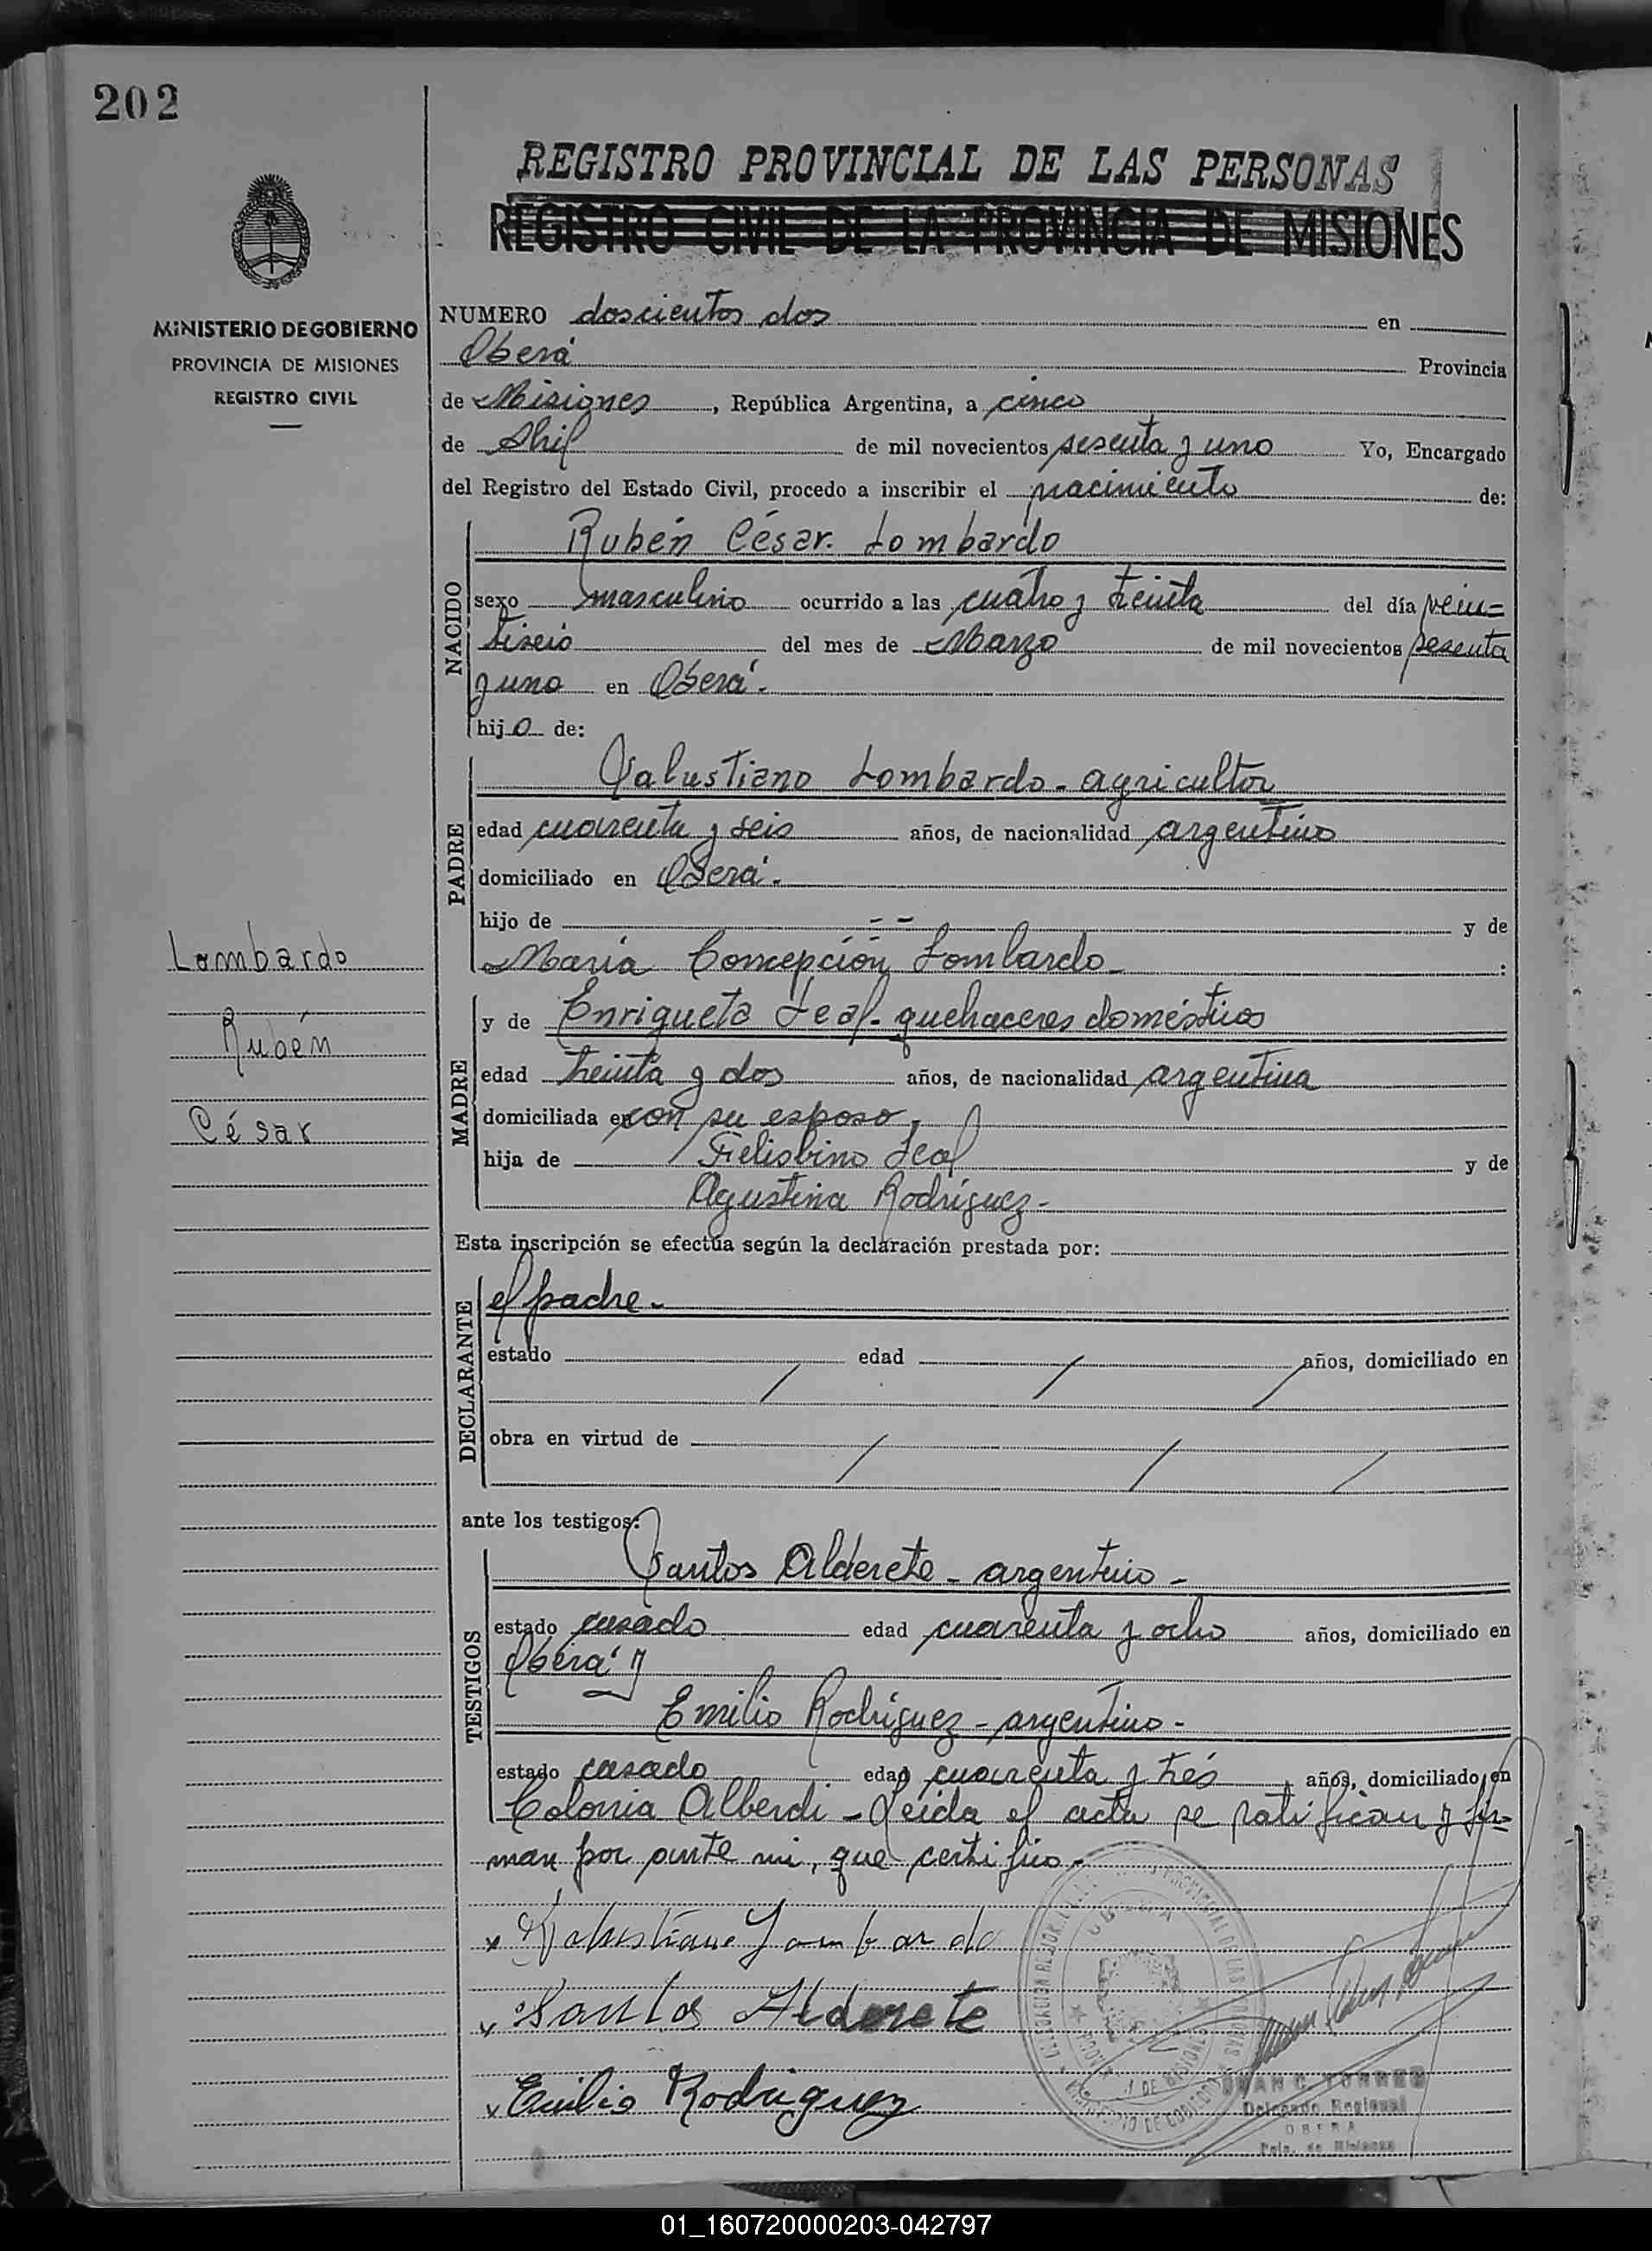 202
REGISTRO PROVINCIAL DE LAS PERSONAS
REGISTRO CIVIL DE LA PROVINCIA DE MISIONES
MINISTERIO DE GOBIERNO
PROVINCIA DE MISIONES
REGISTRO CIVIL
NUMERO doscientos dos en
Oberá Provincia
de Misiones, República Argentina, a cinco
de Abril de mil novecientos sesenta y uno Yo, Encargado
del Registro del Estado Civil, procedo a inscribir el nacimiento de:
NACIDO
Rubén César. Lombardo
sexo masculino ocurrido a las cuatro y treinta del día vein=
tiseis del mes de Marzo de mil novecientos sesenta
y uno en Oberá.
hijo de:
PADRE
Salustiano Lombardo - agricultor
edad cuarenta y seis años, de nacionalidad argentino
domiciliado en Oberá.
hijo de - - y de
María Concepción Lombardo -
Lombardo
Rubén
César
MADRE
y de Enriqueta Leal - quehaceres domésticos
edad treinta y dos años, de nacionalidad argentina
domiciliada en con su esposo.
hija de Felisbino Leal y de
Agustina Rodríguez -
Esta inscripción se efectúa según la declaración prestada por:
DECLARANTE
el padre -
estado edad años, domiciliado en
obra en virtud de
ante los testigos:
TESTIGOS
Santos Alderete - argentino -
estado casado edad cuarenta y ocho años, domiciliado en
Oberá y
Emilio Rodríguez - argentino -
estado casado edad cuarenta y trés años, domiciliado en
Colonia Alberdi - Leida el acta se ratifican y fir=
man por ante mi, que certifico -
x Salustiano Lombardo
x Santos Alderete
x Emilio Rodriguez
JUAN C. TORRES
Delegado Regional
OBERA
Pcia. de Misiones
01_160720000203-042797